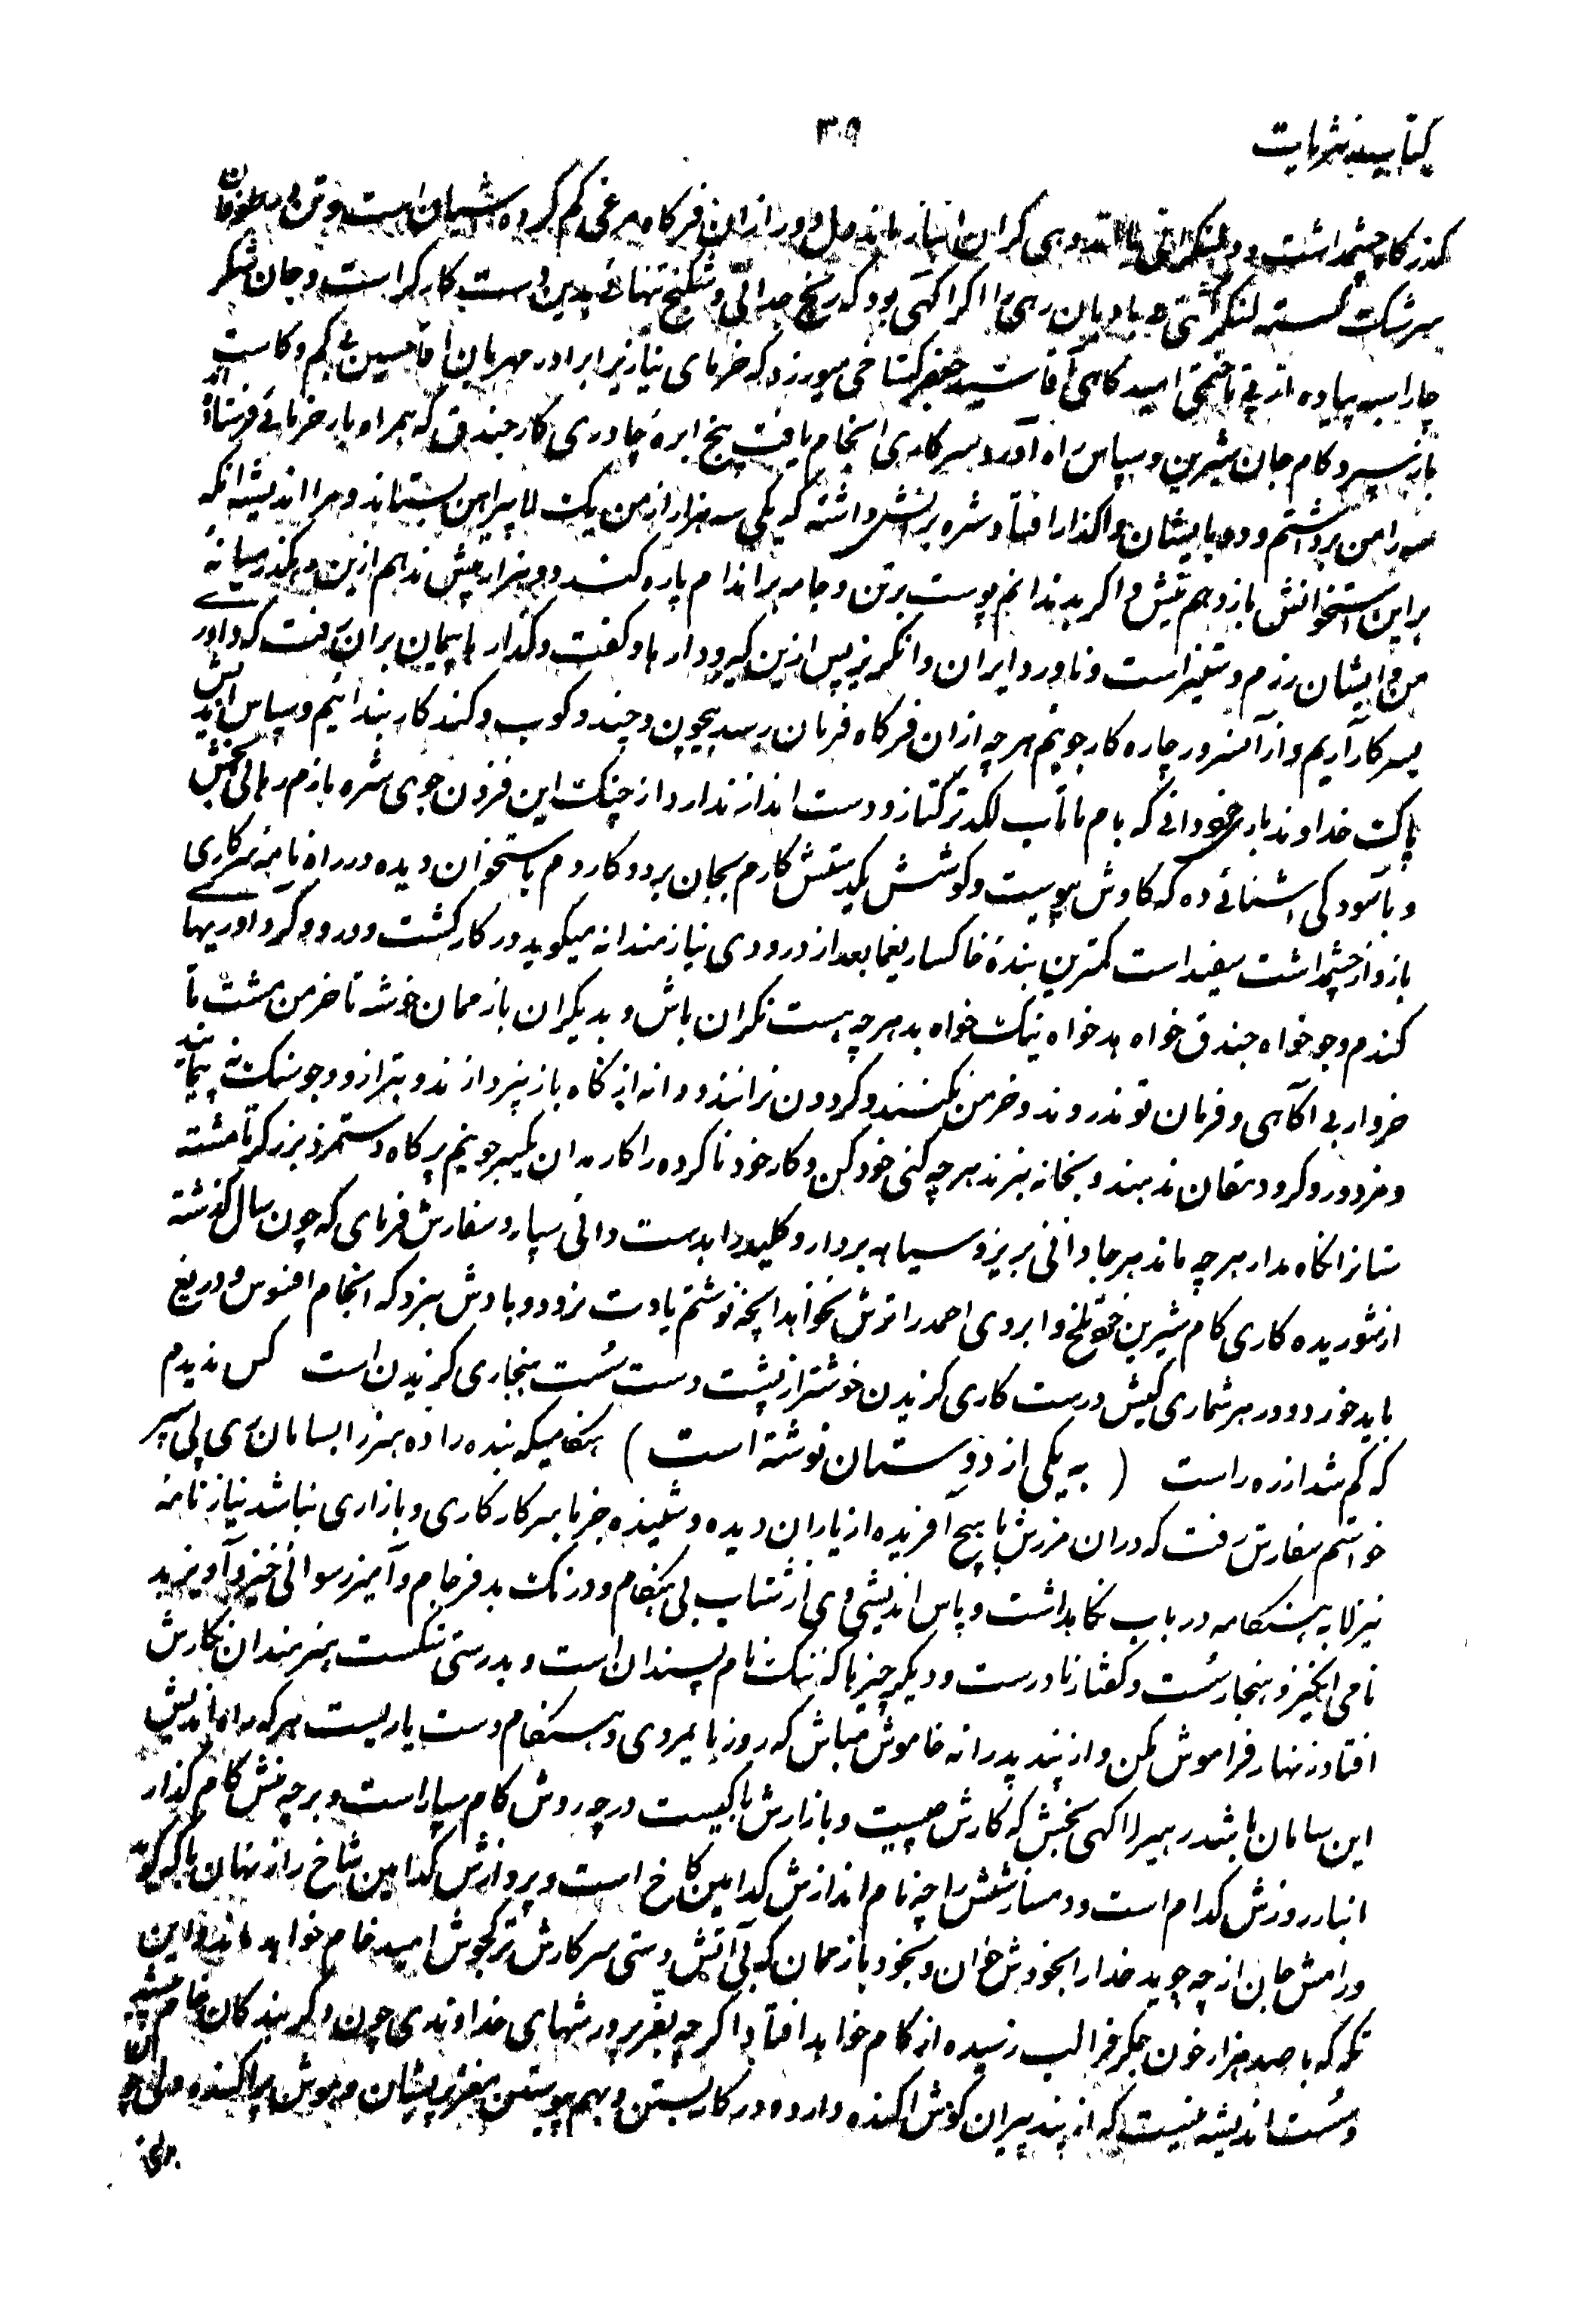 ۳۰۹
گذرگاه چشمداشت و دل بی گران انباز ماند دل دور ازان فرگاه مرغی گم کرده آشیان است و تن
سرشکت گسسته لنگر بادبان رهی را اگر آگهی بود که رنج جدائی و شکنج تنهائی بدین دست کارگر است و جان شکر
چار اسبه پیاده از پی تاختمی امیدگاهی آقا سید جعفر گستاخی میورزد که خرمای نیاز را برادر مهربان آقا حسین بی کم و کاست
باز سپرد کام جان شیرین و سپاس راه آورد سرکاری انجام یافت پنج ابره چادری کار جندق که همراه بار خرمائی فرستاد
سه را من برداشتم و دو با یشان واگذار افتاد شره برانش داشته که یکی سه هزار از من یکت لا پیراهن بستاند و مرا اندیشه آنکه
براین استخوانش بازدهم تیش و اگر بدندانم پوست برتن و جامه براندام پاره کند دو هزار بیش ندهم ازین رهگذر میانه
من و ایشان رزم و ستیز است و ناورد ایران و انگریز پس ازین گیرودار ها و گفت و گذار ها پیمان بران رفت که داور
سرکار آریم و از آنسرور چاره کار جوئیم هرچه ازان فرگاه فرمان رسد بیچون و چند و کوب و کند کار بندانیم و سپاس
پاکت خداوند بار خودانی که بام ما تاب لگد ترکتاز و دست انداز ندارد از چنگت این فزون جوی شره بازم رهائی بخش
و بآسودگی آشنائی ده که کاوش بپوست و کوشش یکدستش کارم بجان برد و کاردم باستخوان دیده در راه نامه سرکاری
بازو از چشمداشت سفید است کمترین بنده خاکسار یغما بعد از درودی نیازمندانه میگوید در کار کشت و درود و گرداوریها
گندم و جو خواه جندق خواه بدخواه نیکت خواه بد هرچه هست نگران باش و بدیگران بازممان خوشه تا خرمن مشت تا
خروار بی آگاهی و فرمان تو ندروند و خرمن نکنند و گردون نرانند و دانه از کاه باز نپردازند و بترازو و جو سنگ نه پیمایند
و مزد درو گرو دهقان ندهند و بخانه نبرند هرچه کنی خود کن و کار خود ناکرده را کار مدان یکسر جو نیم پر کاه دستمزد برزگر تا مشته
ستانرا نگاه مدار هرچه ماند هر جا دانی بریز و سیاهه بردار و کلید را بدست دانی سپار و سفارش فرمای که چون سال گذشته
از شوریده کاری کام شیرین تلخ و ابروی احمد را ترش نخواهد اینچه نوشتم یادت نرود و بادش نبرد که انجام افسوس و دریغ
باید خورد و در هر شماری کیش درست کاری گزیدن خوشتر از پشت دست سست هنجاری گزیدن است کس ندیدم
که گم شد از ره راست ( به یکی از دوستان نوشته است ) هنگامیکه بنده زاده هنر را بسامان ری پی سپر
خواستم سفارش رفت که دران مرزش با هیچ آفریده از یاران دیده و شنیده جز با سرکار کاری و بازاری نباشد نیاز نامه
نیز لابه هنگامه در باب نگاهداشت و پاس اندیشی وی از شتاب بی هنگام و درنگت بدفرجام و آمیز رسوائی خیز و آویز بد
نامی انگیز و هنجار سست و گفتار نادرست و دیگر چیزها که ننگت نام پسندان است و بدرستی شکست هنرمندان نگارش
افتاد زنهار فراموش مکن و از پند پدرانه خاموش مباش که روز پایمردی و هنگام دست یاریست هرگه
این سامان باشد رهی را آگهی بخش که کارش چیست و بازارش با کیست در چه روش گام سپار است و بر چه منش کام گذار
انباز روزش کدام است و دمساز شبش را چه نام اندازش کدامین کاخ است و پروازش کدامین شاخ راز نهان با که گوید
و رامش جان از چه جوید خدا را بخودش خوان و بخود بازممان که بی آتش دستی سرکارش ترکجوش امید خام خواهد ماند و این
تکه که با صد هزار خون جگر فرا لب رسیده از کام خواهد افتاد اگر چه بفر پرورشهای خداوندی چون دگر بندگان خام
و سست اندیشه نیست که از پند پیران گوش آکنده دارد و در کار بستن و بهم پیوستن مغز پریشان و هوش پراکنده